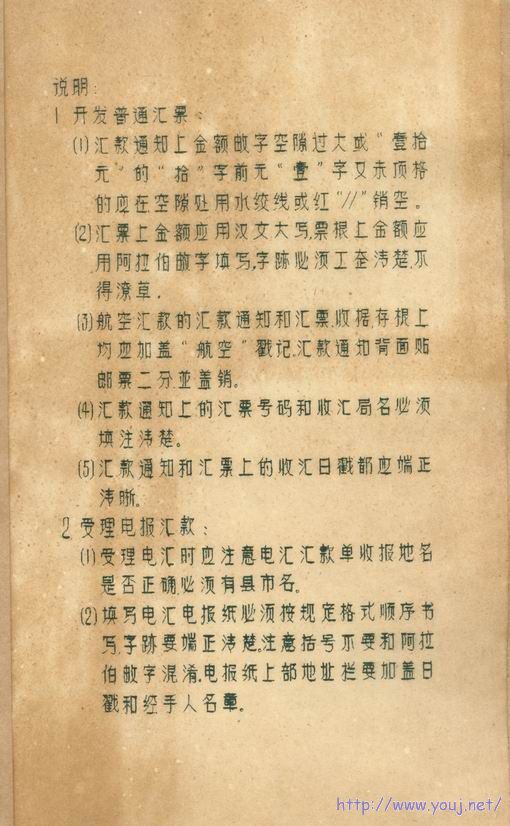 说明:
1 开发普通汇票:
(1)汇款通知上金额数字空隙过大或“壹拾
元”的“拾”字前元“壹”字又未顶格
的应在空隙处用水绞线或红“//”销空。
(2)汇票上金额应用汉文大写,票根上金额应
用阿拉伯数字填写,字跡必须工整清楚,不
得潦草.
(3)航空汇款的汇款通知和汇票,收据,存根上
均应加盖“航空”戳记,汇款通知背面贴
邮票二分,並盖销。
(4)汇款通知上的汇票号码和收汇局名必须
填注清楚。
(5)汇款通知和汇票上的收汇日戳都应端正
清晰。
2.受理电报汇款:
(1)受理电汇时应注意电汇汇款单收报地名
是否正确,必须有县市名。
(2)填写电汇电报纸必须按规定格式顺序书
写,字跡要端正清楚.注意括号不要和阿拉
伯数字混淆,电报纸上部地址拦要加盖日
戳和经手人名章。
http://www.youj.net/